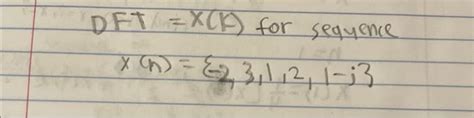 DFT = X(k) for sequence
x(n) = {-2, 3, 1, 2, 1-j}